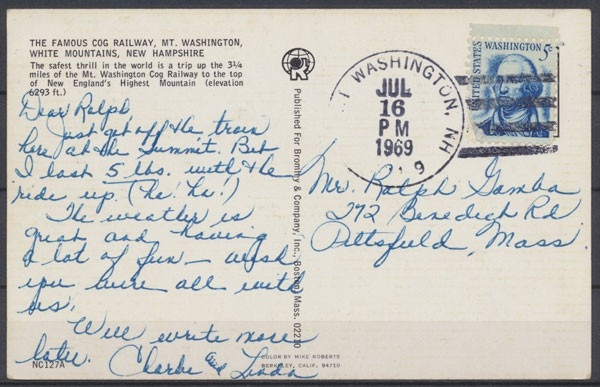 THE FAMOUS COG RAILWAY, MT. WASHINGTON,
WHITE MOUNTAINS, NEW HAMPSHIRE
The safest thrill in the world is a trip up the 3¼
miles of the Mt. Washington Cog Railway to the top
of New England's Highest Mountain (elevation
6293 ft.)
Dear Ralph
Just got off the train
here at the Summit. Bet
I lost 5 lbs. with the
ride up. (ha! ha!)
The weather is
great and having
a lot of fun – wish
you were all with
us.
Will write more
later. Charlie and Linda
NC127A
Published For Bromley & Company, Inc., Boston, Mass. 02210
COLOR BY MIKE ROBERTS
BERKELEY, CALIF. 94710
WASHINGTON, NH
JUL
16
PM
1969
UNITED STATES
WASHINGTON 5c
Mr. Ralph Gamba
272 Benedigh Rd
Pittsfield, Mass.